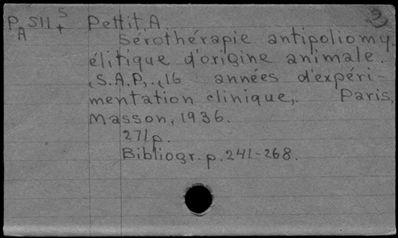 PA 511 S+ Pettit, A. 3
Sérothérapie antipoliomy
élitique d'origine animale.
(S.A.P.,.(16 années d'expéri-
mentation clinique,. Paris,
Masson, 1936.
271p.
Bibliogr. p. 241-268.